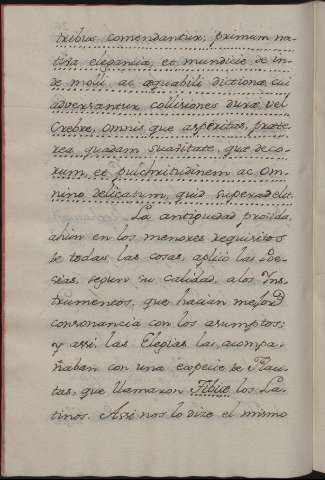 tribus comendantur; primum na-
tiva elegancia, et mundicie de in-
de moli, ac æquabili dictione cui
adversantur collisiones duræ vel
Crebre, omnis que asperitas, præte
rea quadam suavitate, que deco-
rum, et pulchritudinem ac om-
nino delicatum, quid superad dit.
La antiguedad provida,
ahun en los menores requisitos
de todas las cosas, aplicò las Poe-
sias, segun su calidad, a los Yns-
trumentos, que hacian mejor
consonancia con los asumptos;
y assi las Elegias las acompa-
ñaban con una especie de Flau-
tas, que llamaron Tibiæ los La-
tinos. Assi nos lo dize el mismo